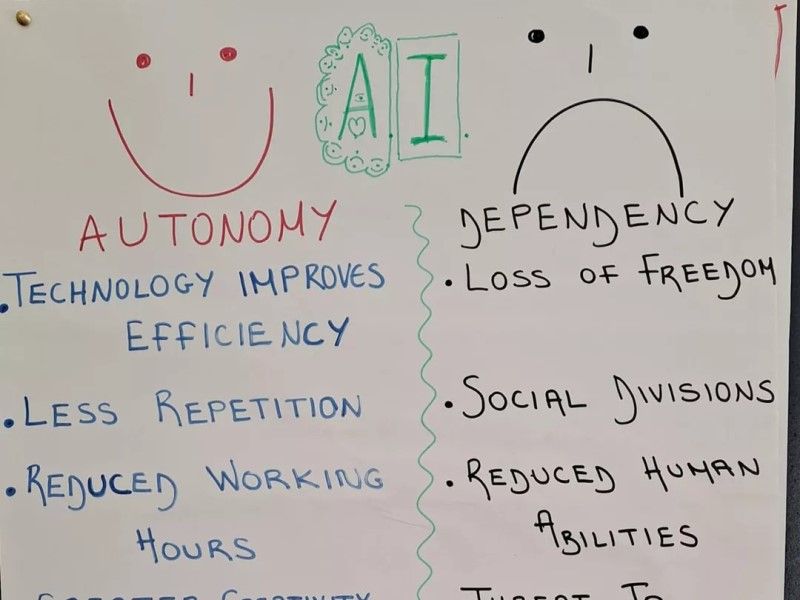 A.I.
AUTONOMY
.TECHNOLOGY IMPROVES
EFFICIENCY
.LESS REPETITION
.REDUCED WORKING
HOURS
GREATER CREATIVITY
DEPENDENCY
.LOSS OF FREEDOM
.SOCIAL DIVISIONS
.REDUCED HUMAN
ABILITIES
THREAT TO